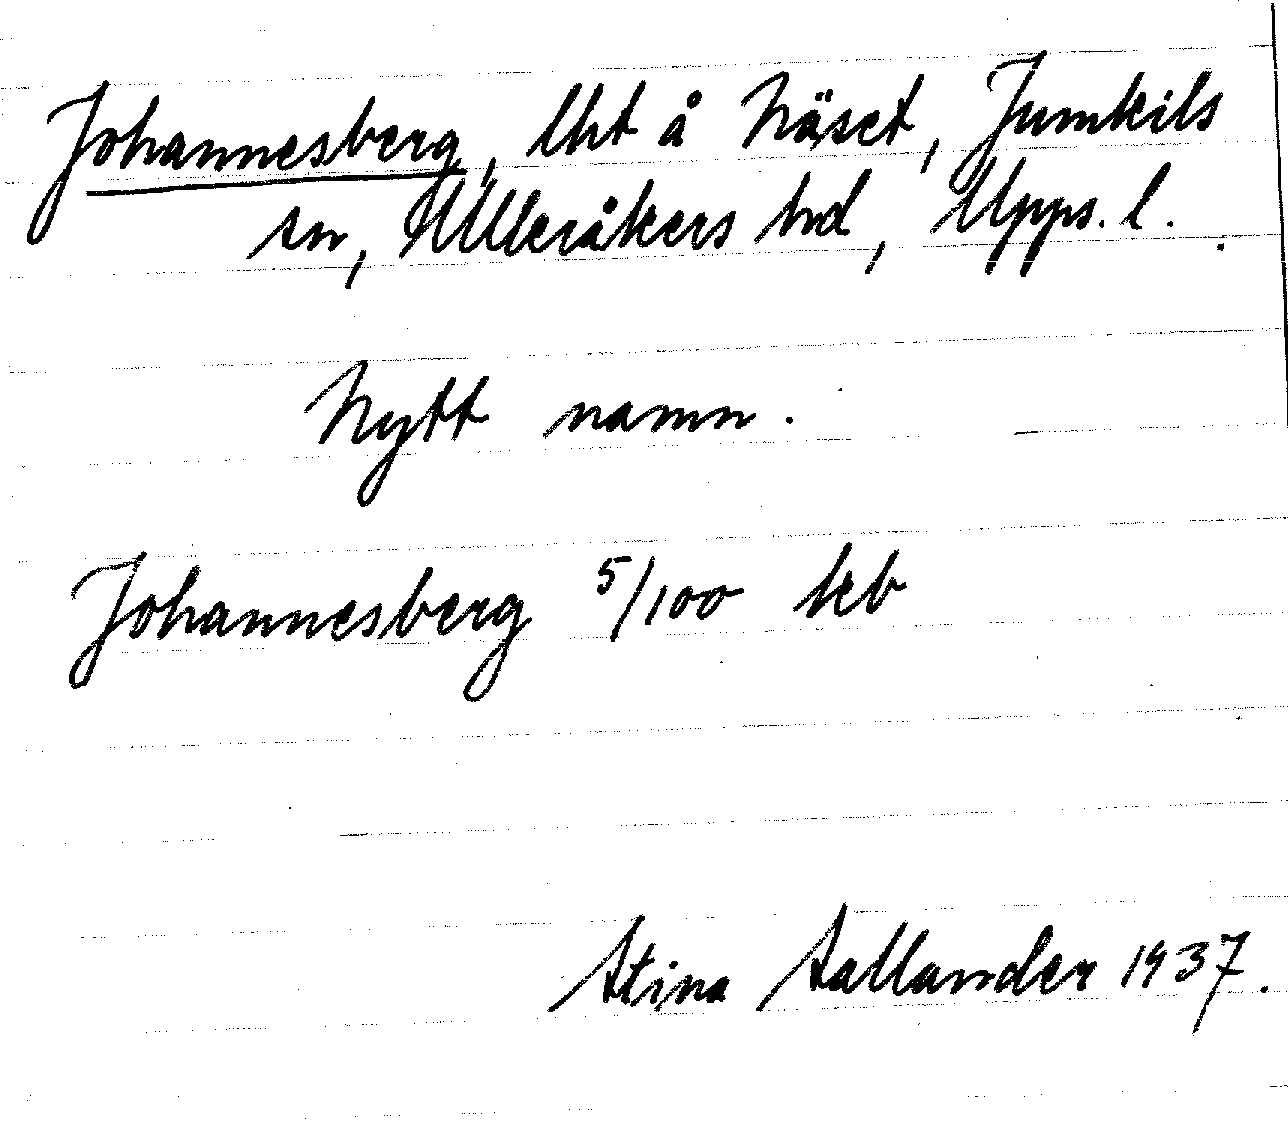 Johannesberg, lht å Näset, Jumkils
sn, Ulleråkers hd, Upps. l.
Nytt namn.
Johannesberg 5/100 keb
Stina Sallander 1937.